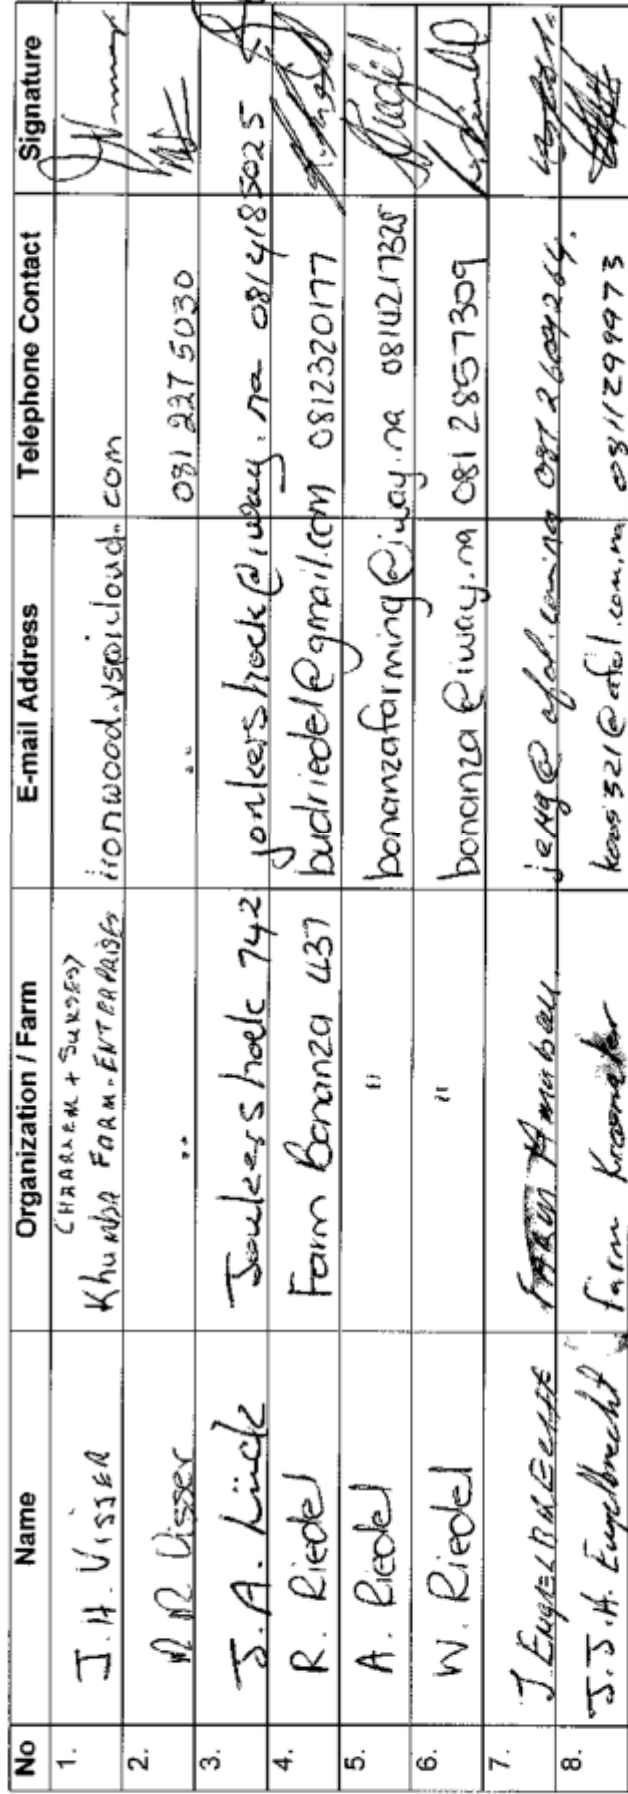 No Name Organization / Farm E-mail Address Telephone Contact Signature
1. J.H. VISSER CHAARKEM + SUKSES) Khumba FARM-ENTERPRISES ironwood.vs@icloud.com
2. Visser " " 081 237 5030
3. J.A. Lück Jonkershoek 742 jonkershoek@iway.na 081 418 5025
4. R. Riedel Farm Bonanza 437 budriedel@gmail.com 0812320177
5. A. Riedel " bonanzafarming@iway.na 0814217325
6. W. Riedel " bonanza@iway.na 081 2857309
7. J ENGELBRECHT FARM
8. J.J.H. Engelbrecht farm koos321@afol.com.na 0811299973